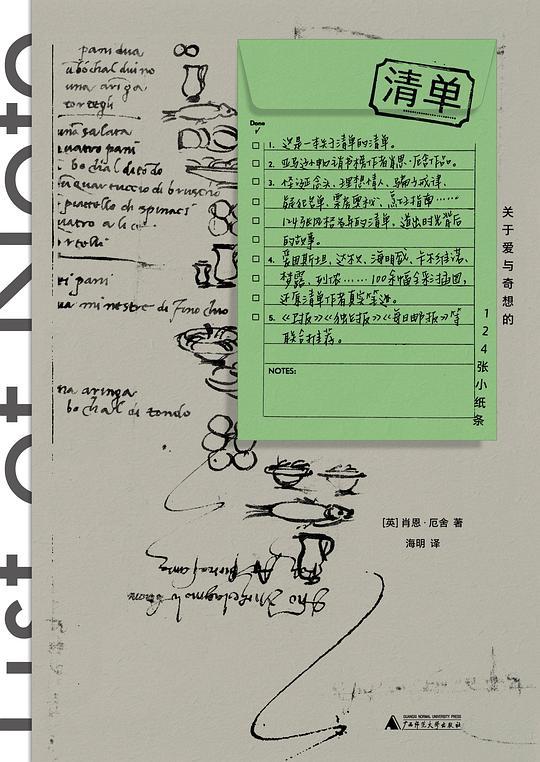 pani dua
u bochal duino
una aringa
tortegli
una salata
quatro pani
bochal de tōdo
un quartuccio di bruschо
piatello di spinaci
quatro alice
tortelli
sei pani
dua minestre di finochio
una aringa
bochal di tondo
清单
Done
1. 这是一本关于清单的清单。
2. 亚马逊畅销书榜作者肖恩·厄舍作品。
3. 怪诞念头、理想情人、骗子戒律、
疑犯名单、黑帮奥秘、亲子指南……
124张风格各异的清单，道出时光背后
的故事。
4. 爱因斯坦、达·芬奇、海明威、卡尔维诺、
梦露、列侬……100余幅全彩插图，
还原清单作者真实笔迹。
5. 《卫报》《独立报》《每日邮报》等
联合推荐。
NOTES:
关于爱与奇想的
124张小纸条
[英] 肖恩·厄舍 著
海明 译
GUANGXI NORMAL UNIVERSITY PRESS
广西师范大学出版社